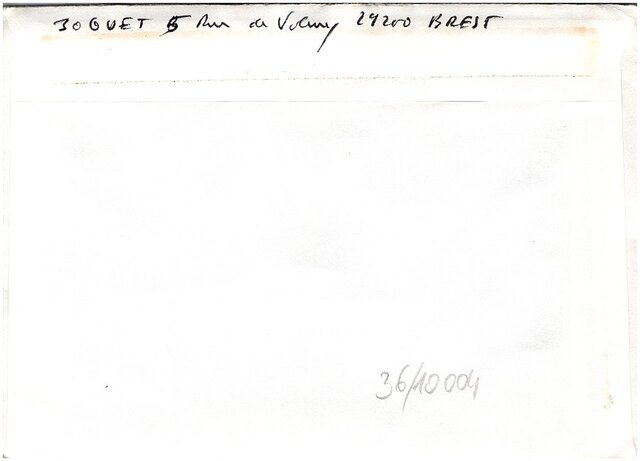 JOQUET 5 Rue de Volney 29200 BREST
36/10004